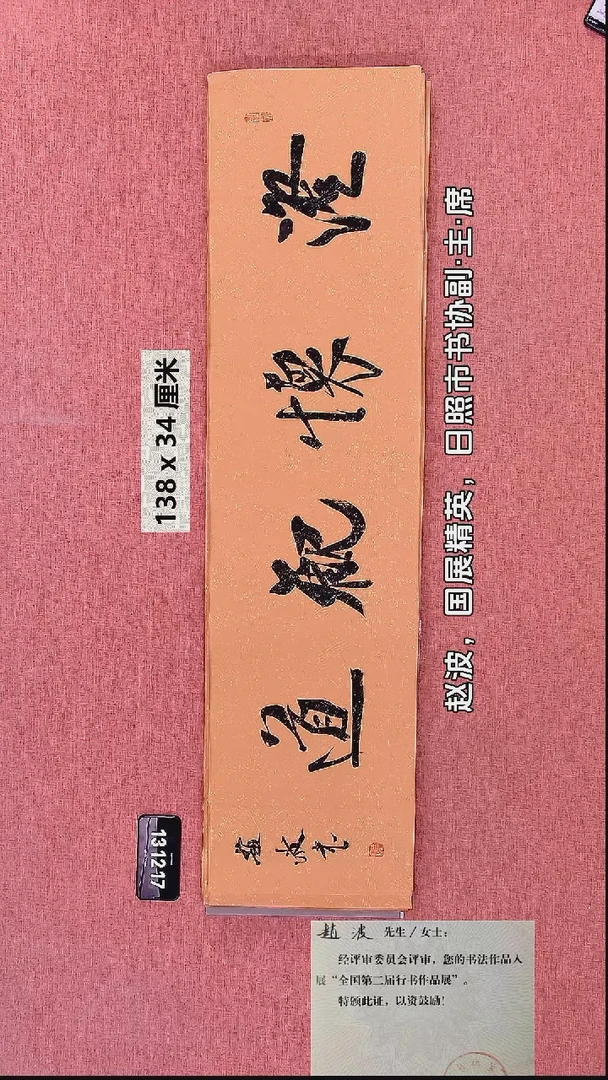 138 x 34 厘米
澄懷觀道
趙波书
赵波，国展精英，日照市书协副·主·席
13:12:17
趙 波 先生/女士：
经评审委员会评审，您的书法作品入
展“全国第二届行书作品展”。
特颁此证，以资鼓励！